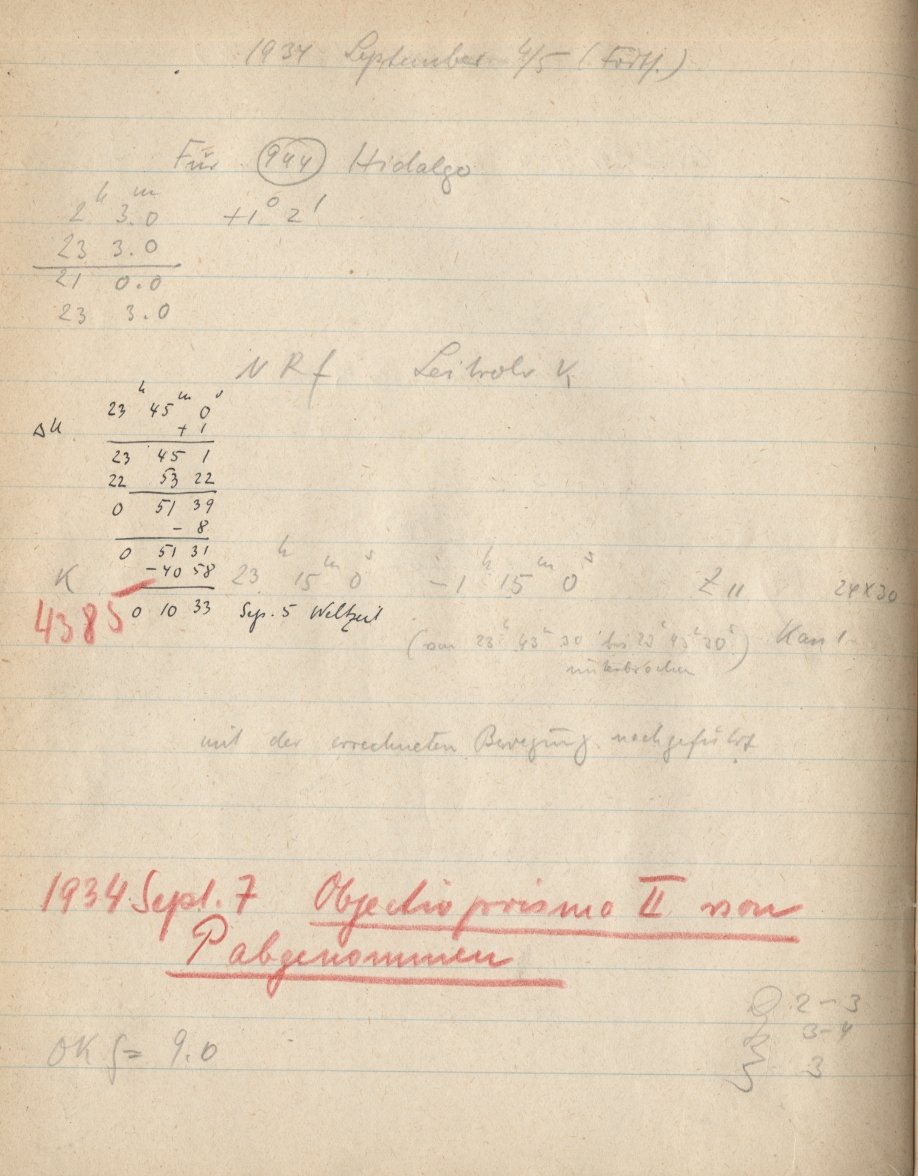 1934 September 4/5 (Forts.)
Für (944) Hidalgo
2ʰ 3.0ᵐ +1° 2'
23 3.0
21 0.0
23 3.0
N R f Leitrohr
23ʰ 45ᵐ 0ˢ
Δu + 1
23 45 1
22 53 22
0 51 39
- 8
0 51 31
-40 58
K 23ʰ 15ᵐ 0ˢ -1ʰ 15ᵐ 0ˢ Z II 24x30
4385 0 10 33 Sep. 5 Weltzeit
(von 23ʰ 43ᵐ 30ˢ bis 23ʰ 45ᵐ 30ˢ)
unterbrochen
mit der errechneten Bewegung nachgeführt
1934 Sept. 7 Objectivprisma II von
P abgenommen
2-3
3-4
OK f= 9.0 3